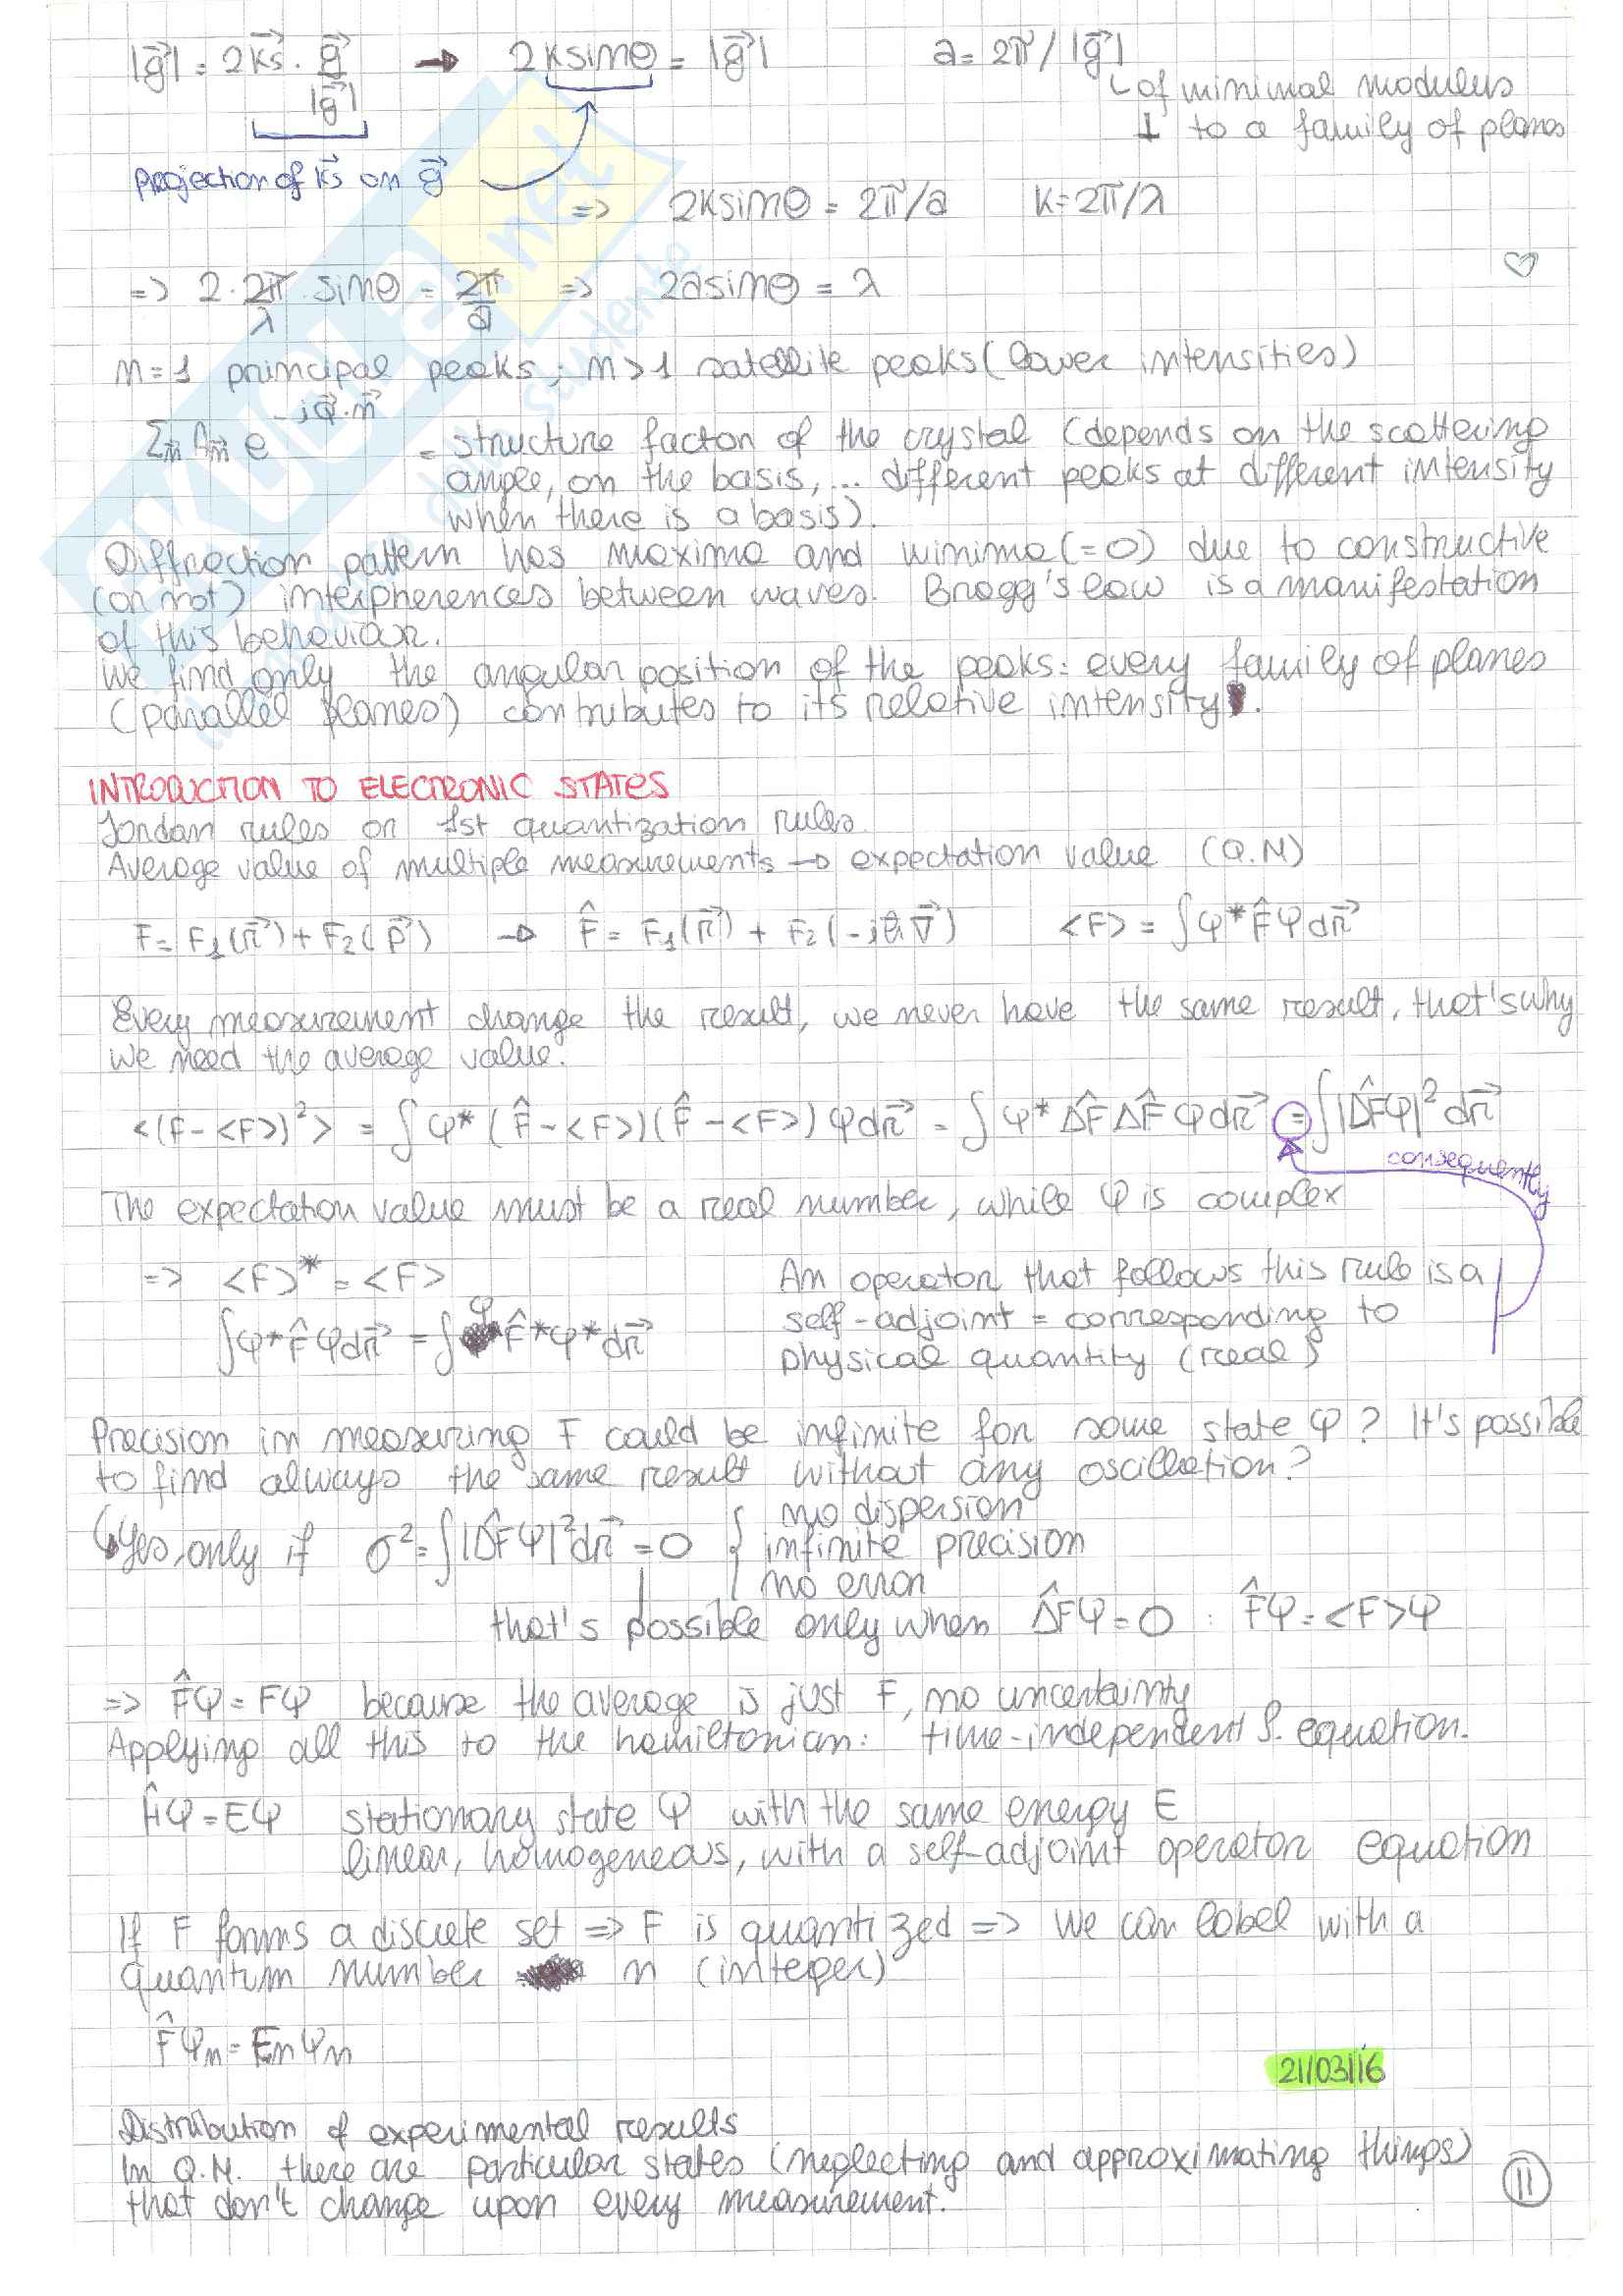 |g⃗| = 2k⃗s · g⃗/|g⃗| → 2ksinθ = |g⃗| a = 2π/|g⃗|
↳ of minimal modulus
⊥ to a family of planes
projection of k⃗s on g⃗
=> 2ksinθ = 2π/a k = 2π/λ
=> 2·2π/λ · sinθ = 2π/a => 2asinθ = λ ♡
n=1 principal peaks; n>1 satellite peaks (lower intensities)
Σn⃗ An⃗ e^(-iQ⃗·n⃗) = structure factor of the crystal (depends on the scattering
angle, on the basis, ... different peaks at different intensity
when there is a basis).
Diffraction pattern has maxima and minima (=0) due to constructive
(or not) interpherences between waves. Bragg's law is a manifestation
of this behaviour.
We find only the angular position of the peaks: every family of planes
(parallel planes) contributes to its relative intensity.
INTRODUCTION TO ELECTRONIC STATES
Jordan rules or 1st quantization rules.
Average value of multiple measurements → expectation value (Q.M)
F = F1(r⃗) + F2(p⃗) → F̂ = F1(r⃗) + F2(-iℏ∇⃗) <F> = ∫φ*F̂φdr⃗
Every measurement change the result, we never have the same result, that's why
we need the average value.
<(F-<F>)²> = ∫φ*(F̂-<F>)(F̂-<F>)φdr⃗ = ∫φ*ΔF̂ΔF̂φdr⃗ = ∫|ΔF̂φ|²dr⃗
consequently
The expectation value must be a real number, while φ is complex
=> <F>* = <F> An operator that follows this rule is a
∫φ*F̂φdr⃗ = ∫φF̂*φ*dr⃗ self-adjoint = corresponding to
physical quantity (real)
Precision in measuring F could be infinite for some state φ? It's possible
to find always the same result without any oscillation?
↳ Yes, only if σ² = ∫|ΔF̂φ|²dr⃗ = 0 { no dispersion
infinite precision
no error
that's possible only when ΔF̂φ = 0 : F̂φ = <F>φ
=> F̂φ = Fφ because the average is just F, no uncertainty
Applying all this to the hamiltonian: time-independent S. equation.
Ĥφ = Eφ stationary state φ with the same energy E
linear, homogeneous, with a self-adjoint operator equation
If F forms a discrete set => F is quantized => We can label with a
quantum number n (integer)
F̂φn = Fnφn
21/03/16
Distribution of experimental results
In Q.M. there are particular states (neglecting and approximating things)
that don't change upon every measurement.
11